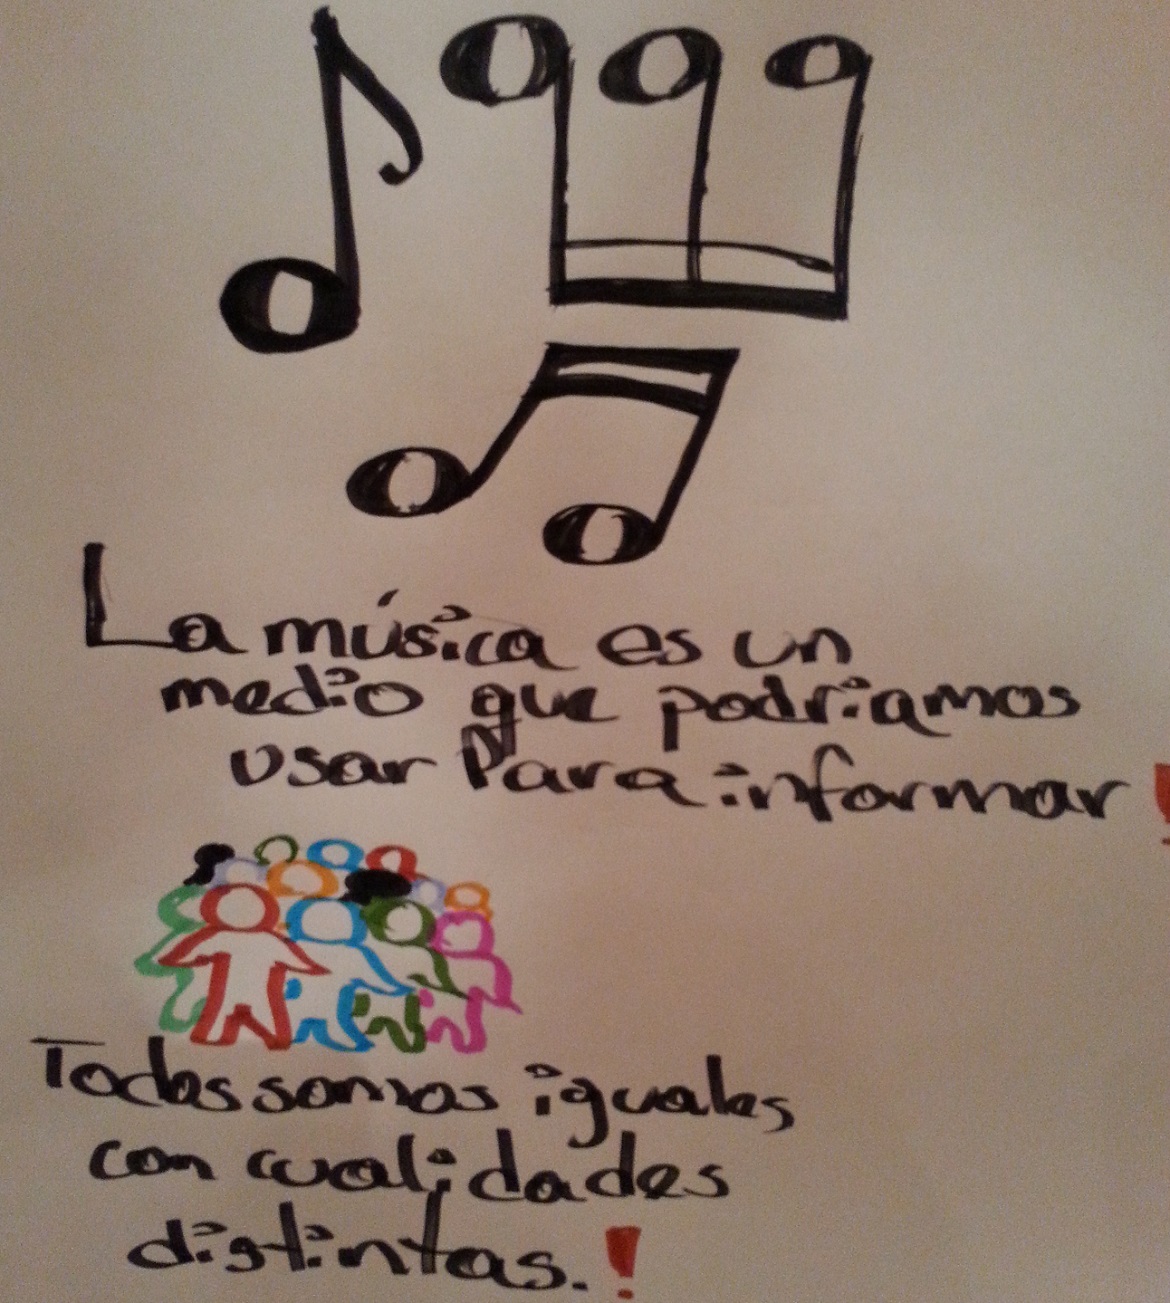 La música es un
medio que podriamos
usar Para informar!
Todos somos iguales
con cualidades
distintas.!